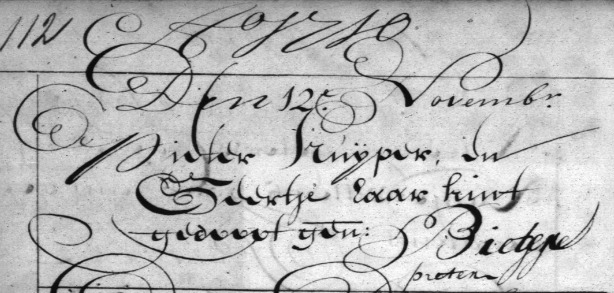 112 Aº 1740
Den 12e. Novembr.
Pieter Kuyper, en
Geertje Laar kint
gedoopt gen:
pieter